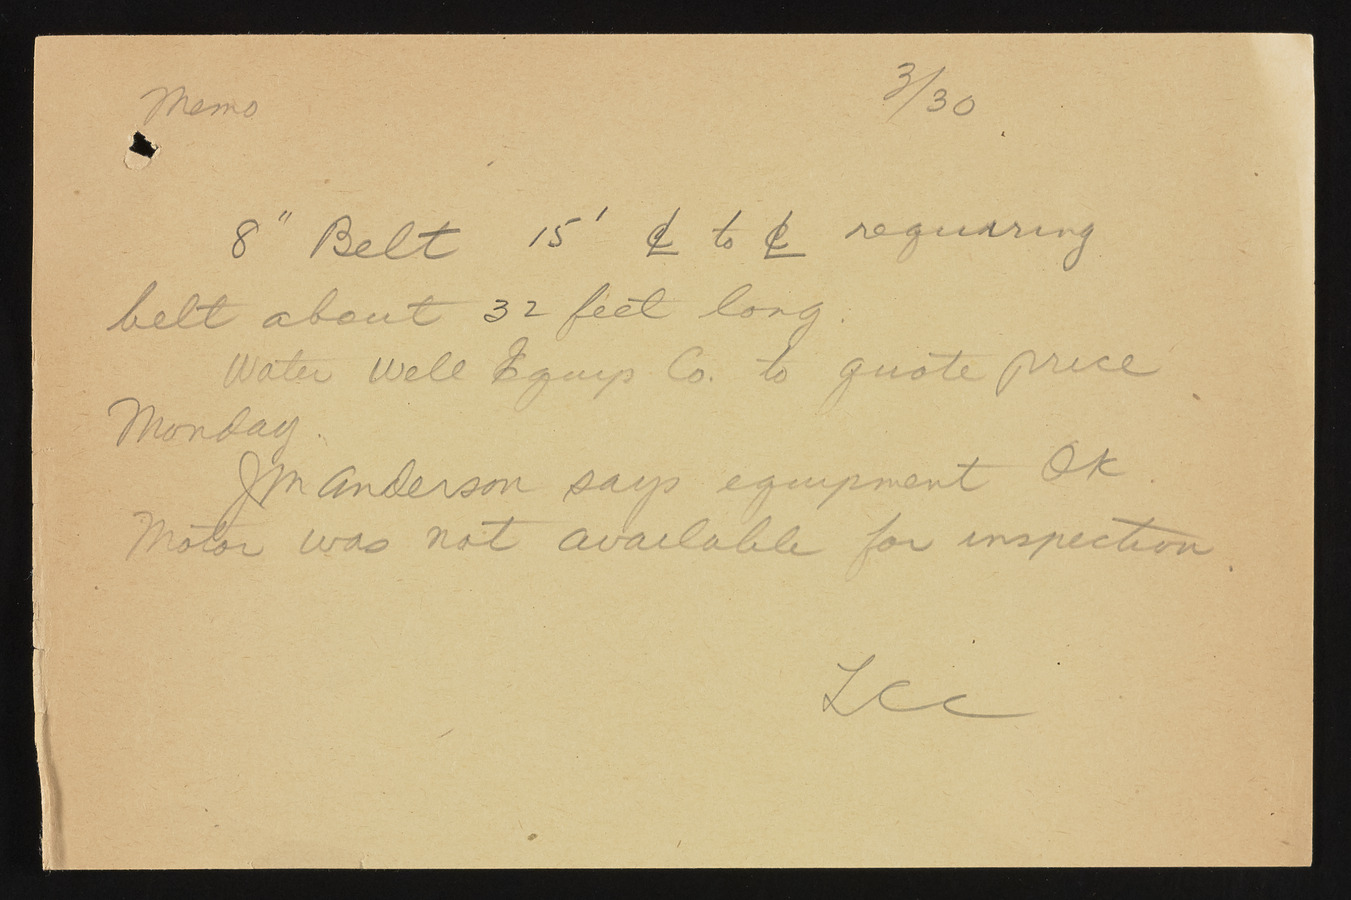 Memo
3/30
8" Belt 15' ℄ to ℄ requiring
belt about 32 feet long.
Water Well Equip Co. to quote price
Monday.
JM Anderson says equipment OK.
Motor was not available for inspection.
LCC